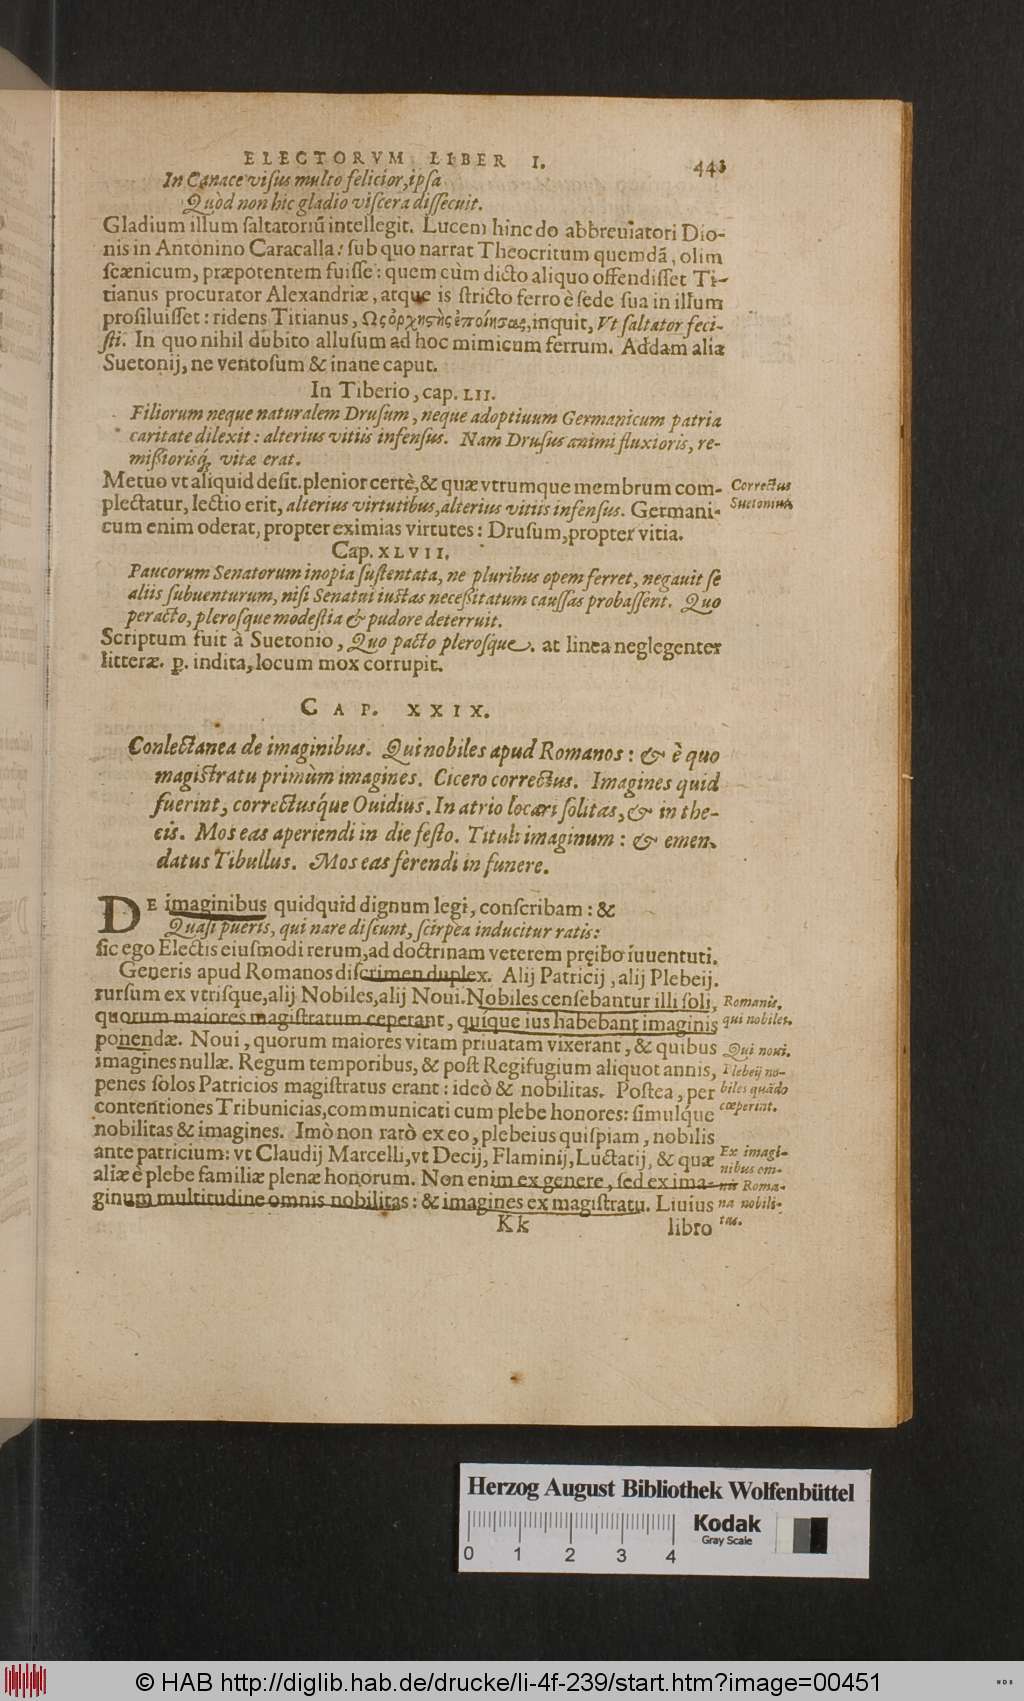 ELECTORVM LIBER I. 443
In Canace visus multo felicior, ipsa
Quòd non hic gladio viscera dissecuit.
Gladium illum saltatoriũ intellegit. Lucem hinc do abbreuiatori Dio-
nis in Antonino Caracalla: sub quo narrat Theocritum quemdã, olim
scænicum, præpotentem fuisse: quem cùm dicto aliquo offendisset Ti-
tianus procurator Alexandriæ, atque is stricto ferro è sede sua in illum
prosiluisset: ridens Titianus, Ως ὀρχηςὴς ἐποίησας, inquit, Vt saltator feci-
sti. In quo nihil dubito allusum ad hoc mimicum ferrum. Addam alia
Suetonij, ne ventosum & inane caput.
In Tiberio, cap. LII.
Filiorum neque naturalem Drusum, neque adoptiuum Germanicum patria
caritate dilexit: alterius vitiis infensus. Nam Drusus animi fluxioris, re-
missiorisq́ vitæ erat.
Metuo vt aliquid desit. plenior certè, & quæ vtrumque membrum com-
plectatur, lectio erit, alterius virtutibus, alterius vitiis infensus. Germani-
cum enim oderat, propter eximias virtutes: Drusum, propter vitia.
Correctus
Suetonius
Cap. XLVII.
Paucorum Senatorum inopia sustentata, ne pluribus opem ferret, negauit se
aliis subuenturum, nisi Senatui iustas necessitatum caussas probassent. Quo
peracto, plerosque modestia & pudore deterruit.
Scriptum fuit à Suetonio, Quo pacto plerosque. at linea neglegenter
litteræ. p. indita, locum mox corrupit.
CAP. XXIX.
Conlectanea de imaginibus. Qui nobiles apud Romanos: & è quo
magistratu primùm imagines. Cicero correctus. Imagines quid
fuerint, correctusq́ue Ouidius. In atrio locari solitas, & in the-
cis. Mos eas aperiendi in die festo. Tituli imaginum: & emen-
datus Tibullus. Mos eas ferendi in funere.
DE imaginibus quidquid dignum legi, conscribam: &
Quasi pueris, qui nare discunt, scirpea inducitur ratis:
sic ego Electis eiusmodi rerum, ad doctrinam veterem pręibo iuuentuti.
Generis apud Romanos discrimen duplex. Alij Patricij, alij Plebeij.
rursum ex vtrisque, alij Nobiles, alij Noui. Nobiles censebantur illi soli,
quorum maiores magistratum ceperant, quíque ius habebant imaginis
ponendæ. Noui, quorum maiores vitam priuatam vixerant, & quibus
imagines nullæ. Regum temporibus, & post Regifugium aliquot annis,
penes solos Patricios magistratus erant: ideò & nobilitas. Postea, per
contentiones Tribunicias, communicati cum plebe honores: simulque
nobilitas & imagines. Imò non rarò ex eo, plebeius quispiam, nobilis
ante patricium: vt Claudij Marcelli, vt Decij, Flaminij, Luctatij, & quæ
aliæ è plebe familiæ plenæ honorum. Non enim ex genere, sed ex ima-
ginum multitudine omnis nobilitas: & imagines ex magistratu. Liuius
Romanis,
qui nobiles.
Qui noui.
Plebeij no-
biles quãdo
cœperint.
Ex imagi-
nibus om-
nis Roma-
na nobili-
tas.
Kk libro
Herzog August Bibliothek Wolfenbüttel
0 1 2 3 4
Kodak
Gray Scale
© HAB http://diglib.hab.de/drucke/li-4f-239/start.htm?image=00451